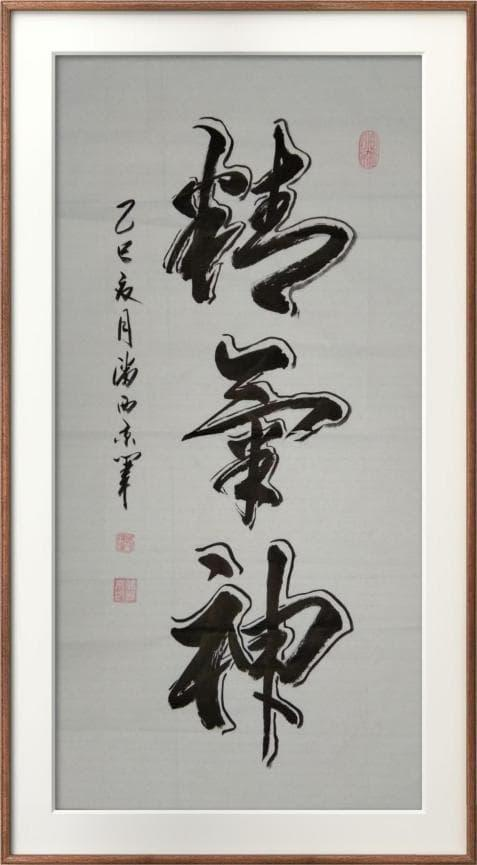 精氣神
乙巳夏月